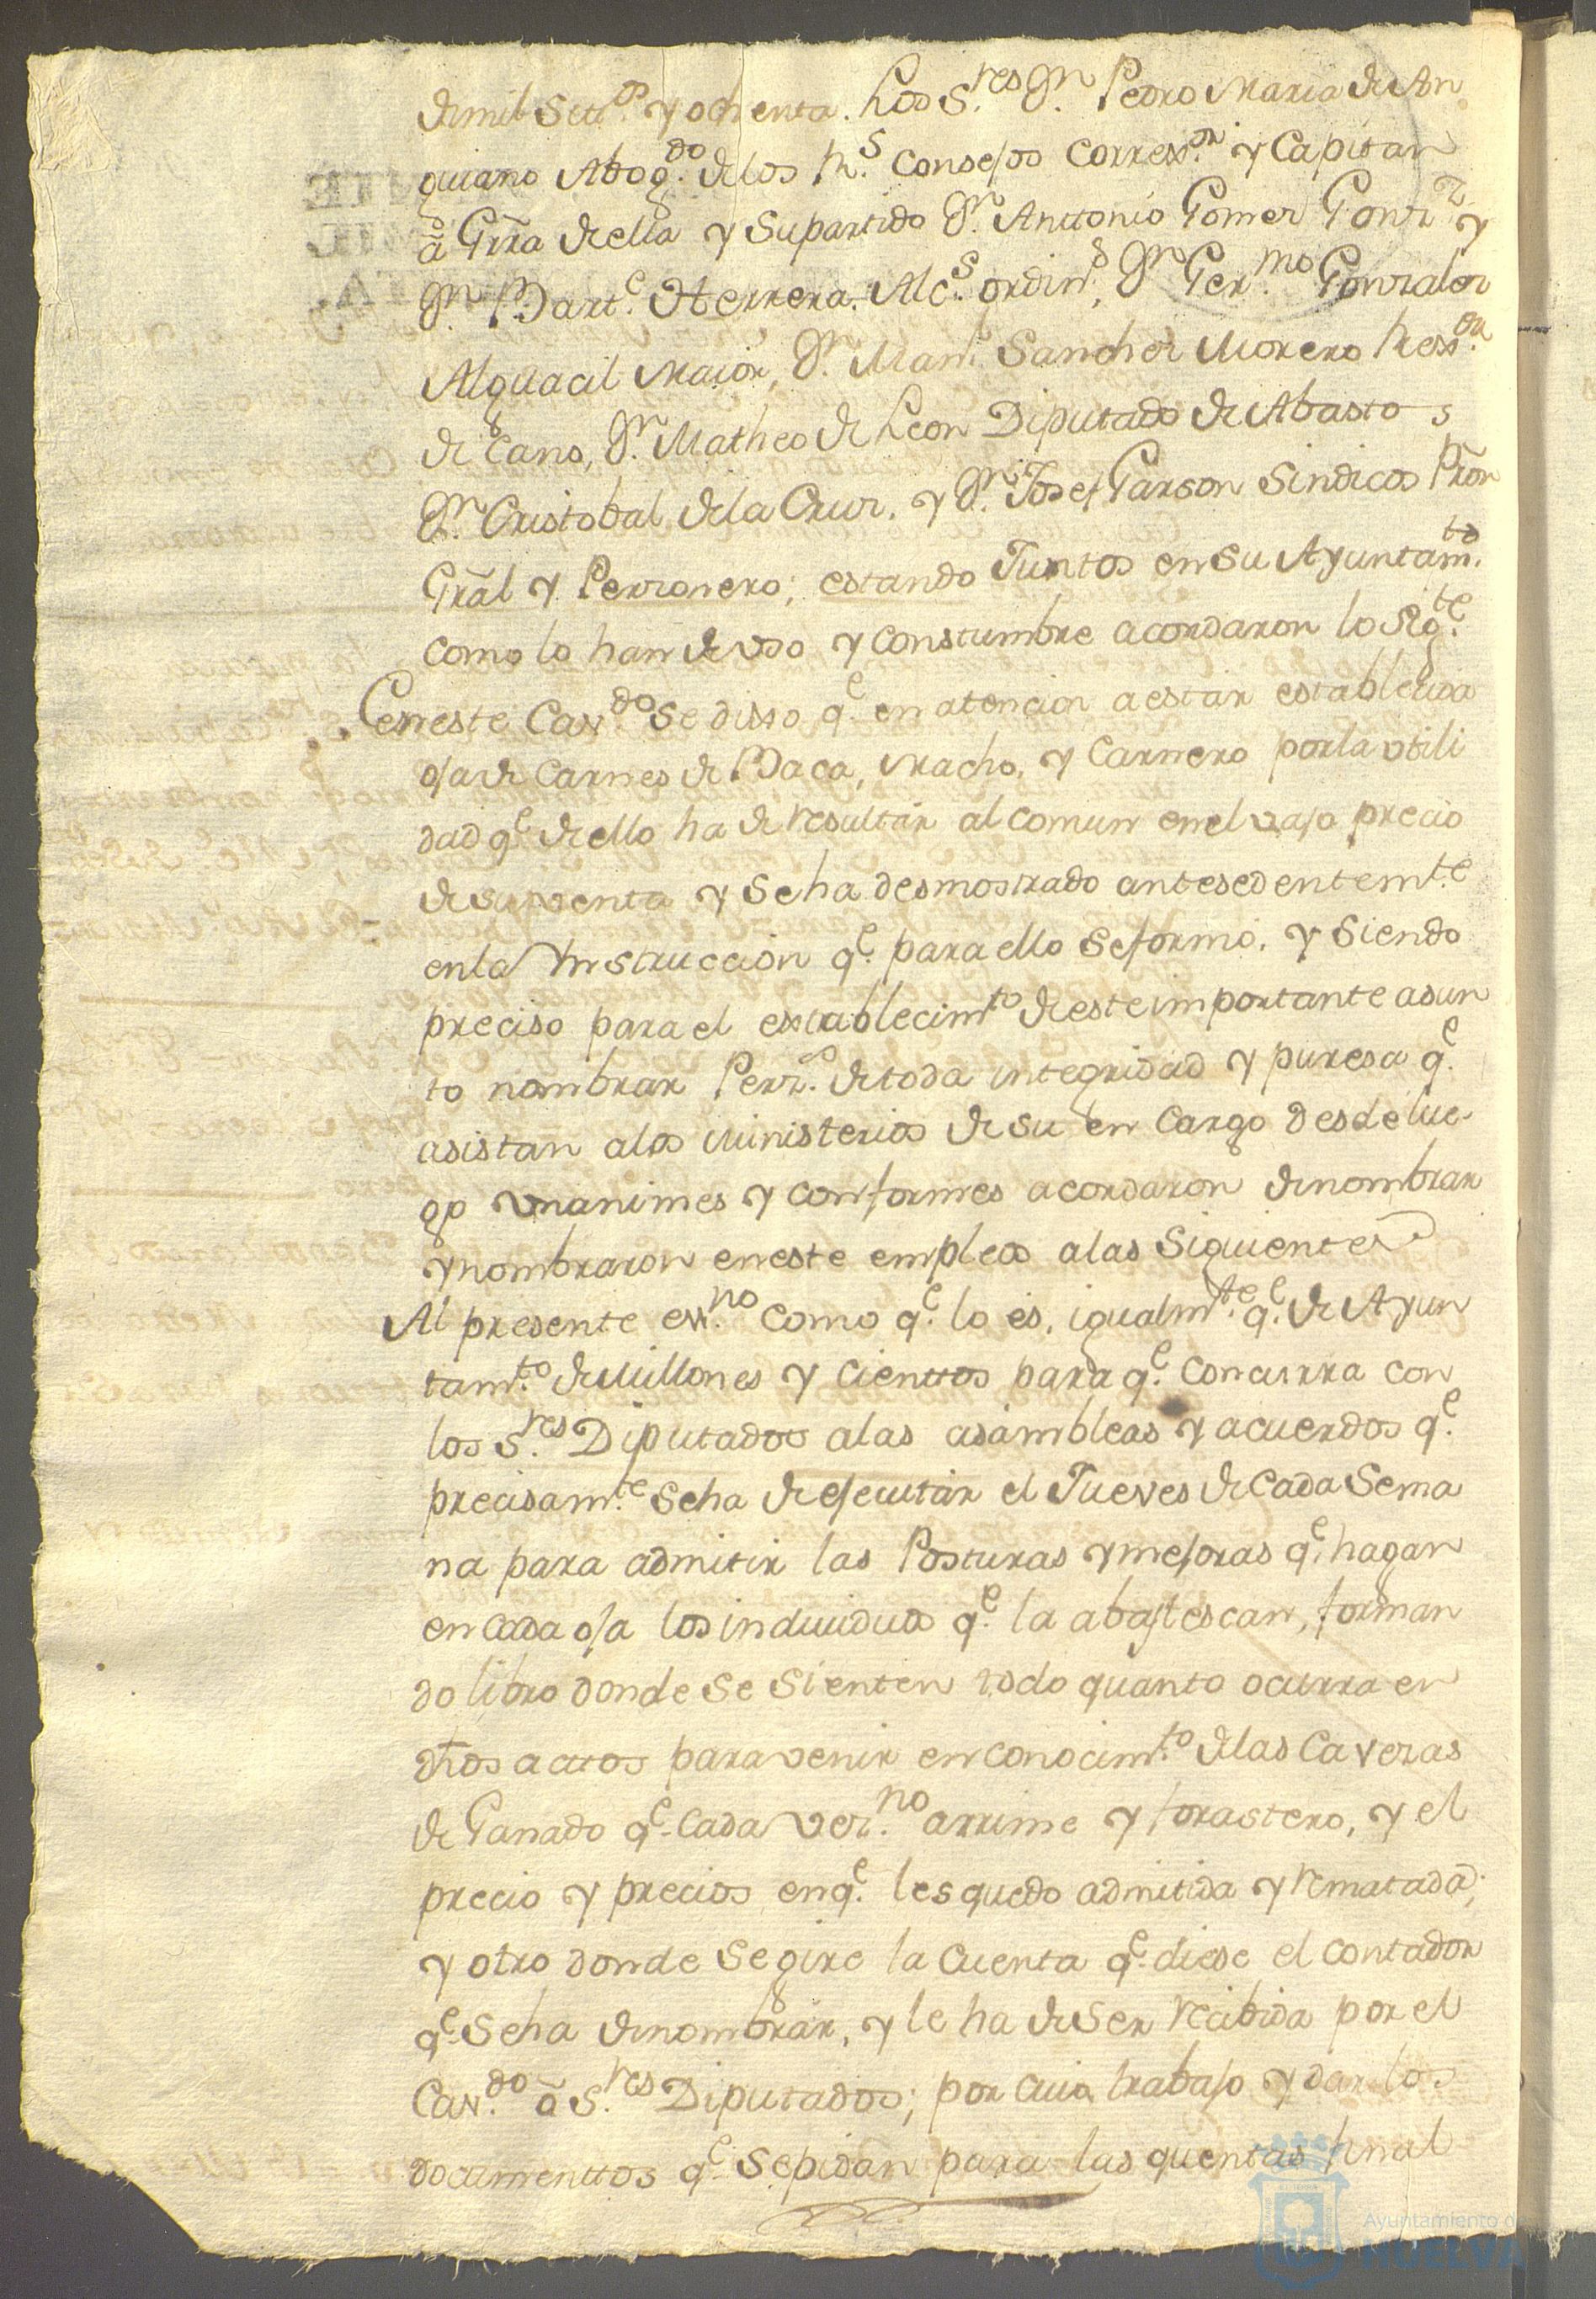 de mil Sett.os y ochenta. Los S.res Dn. Pedro Maria de An
guiano Abog.do de los R.s Consejos Correx.or y Capitan
á Grra de ella y su partido Dn. Anttonio Gomez Gonz.z y
Dn. Bart.e Herrera Alc.s ordin.s, Dn. Ger.mo Gonzalez
Alguacil Maior, Dn. Man.l Sanchez Moreno Rexx.or
de Cano, Dn. Matheo de Leon Diputado de Abastos
Dn. Cristobal de la Cruz. y Dn. Josef Garson Sindicos Pror
Gral y Perzonero; estando Juntos en su Ayuntam.to
como lo han de uso y constumbre acordaron lo sig.te
En este Cav.do se dixo q.e en atencion a estar establecida
oja de Carnes de Baca, Macho, y Carnero por la utili
dad q.e de ello ha de resultar al comun en el vajo precio
de su venta y se ha desmostrado antesedentem.te
en la Instruccion q.e para ello se formó. y siendo
preciso para el establecim.to de este importante asun
to nombrar Perz.s de toda integridad y puresa q.e
asistan a los Ministerios de su en cargo desde lue
go unanimes y conformes acordaron de nombrar
y nombraron en este empleos a las siguientes
Al presente ess.no como q.e lo es, igualm.te q.e de Ayun
tam.to de Millones y Cienttos para q.e concurra con
los S.res Diputados a las asambleas y acuerdos q.e
precisam.te se ha de ejecutar el Jueves de cada Sema
na para admitir las Posturas y mejoras q.e hagan
en cada oja los individuos q.e la abastescan, forman
do libro donde se sienten todo quanto ocurra en
dhos acttos para venir en conocim.to de las Cavezas
de Ganado q.e cada vez.no arrime y forastero, y el
precio y precios en q.e les quedo admitida y rematada;
y otro donde se gire la cuenta q.e diese el contador
q.e se ha de nombrar, y le ha de ser recibida por el
Cav.do ó S.res Diputados; por cuio trabajo y dar los
documenttos q.e se pidan para las quentas final
Ayuntamiento de
HUELVA